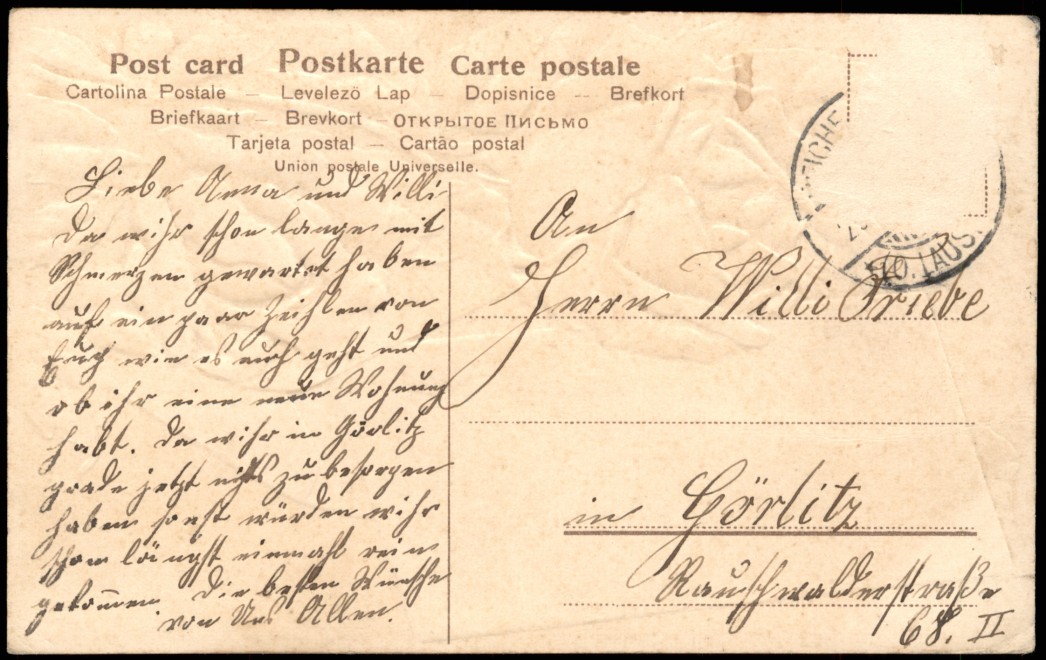 Post card Postkarte Carte postale
Cartolina Postale – Levelezö Lap – Dopisnice – Brefkort
Briefkaart – Brevkort – Открытое Письмо
Tarjeta postal – Cartão postal
Union postale Universelle.
Liebe Anna und Willi
Da wihr schon lange mit
Schmerzen gewartet haben
auf ein paar Zeihlen von
Euch wie es euch geht und
ob ihr eine neue Wohnung
habt. Da wihr in Görlitz
grade jetzt nichts zu besorgen
haben sonst würden wihr
schon längst einmahl rein
gekommen Die besten Wünsche
von Uns Allen.
An
Herrn Willi Priebe
in Görlitz
Rauschwalderstraße
68. II
REICHE
LAUS.